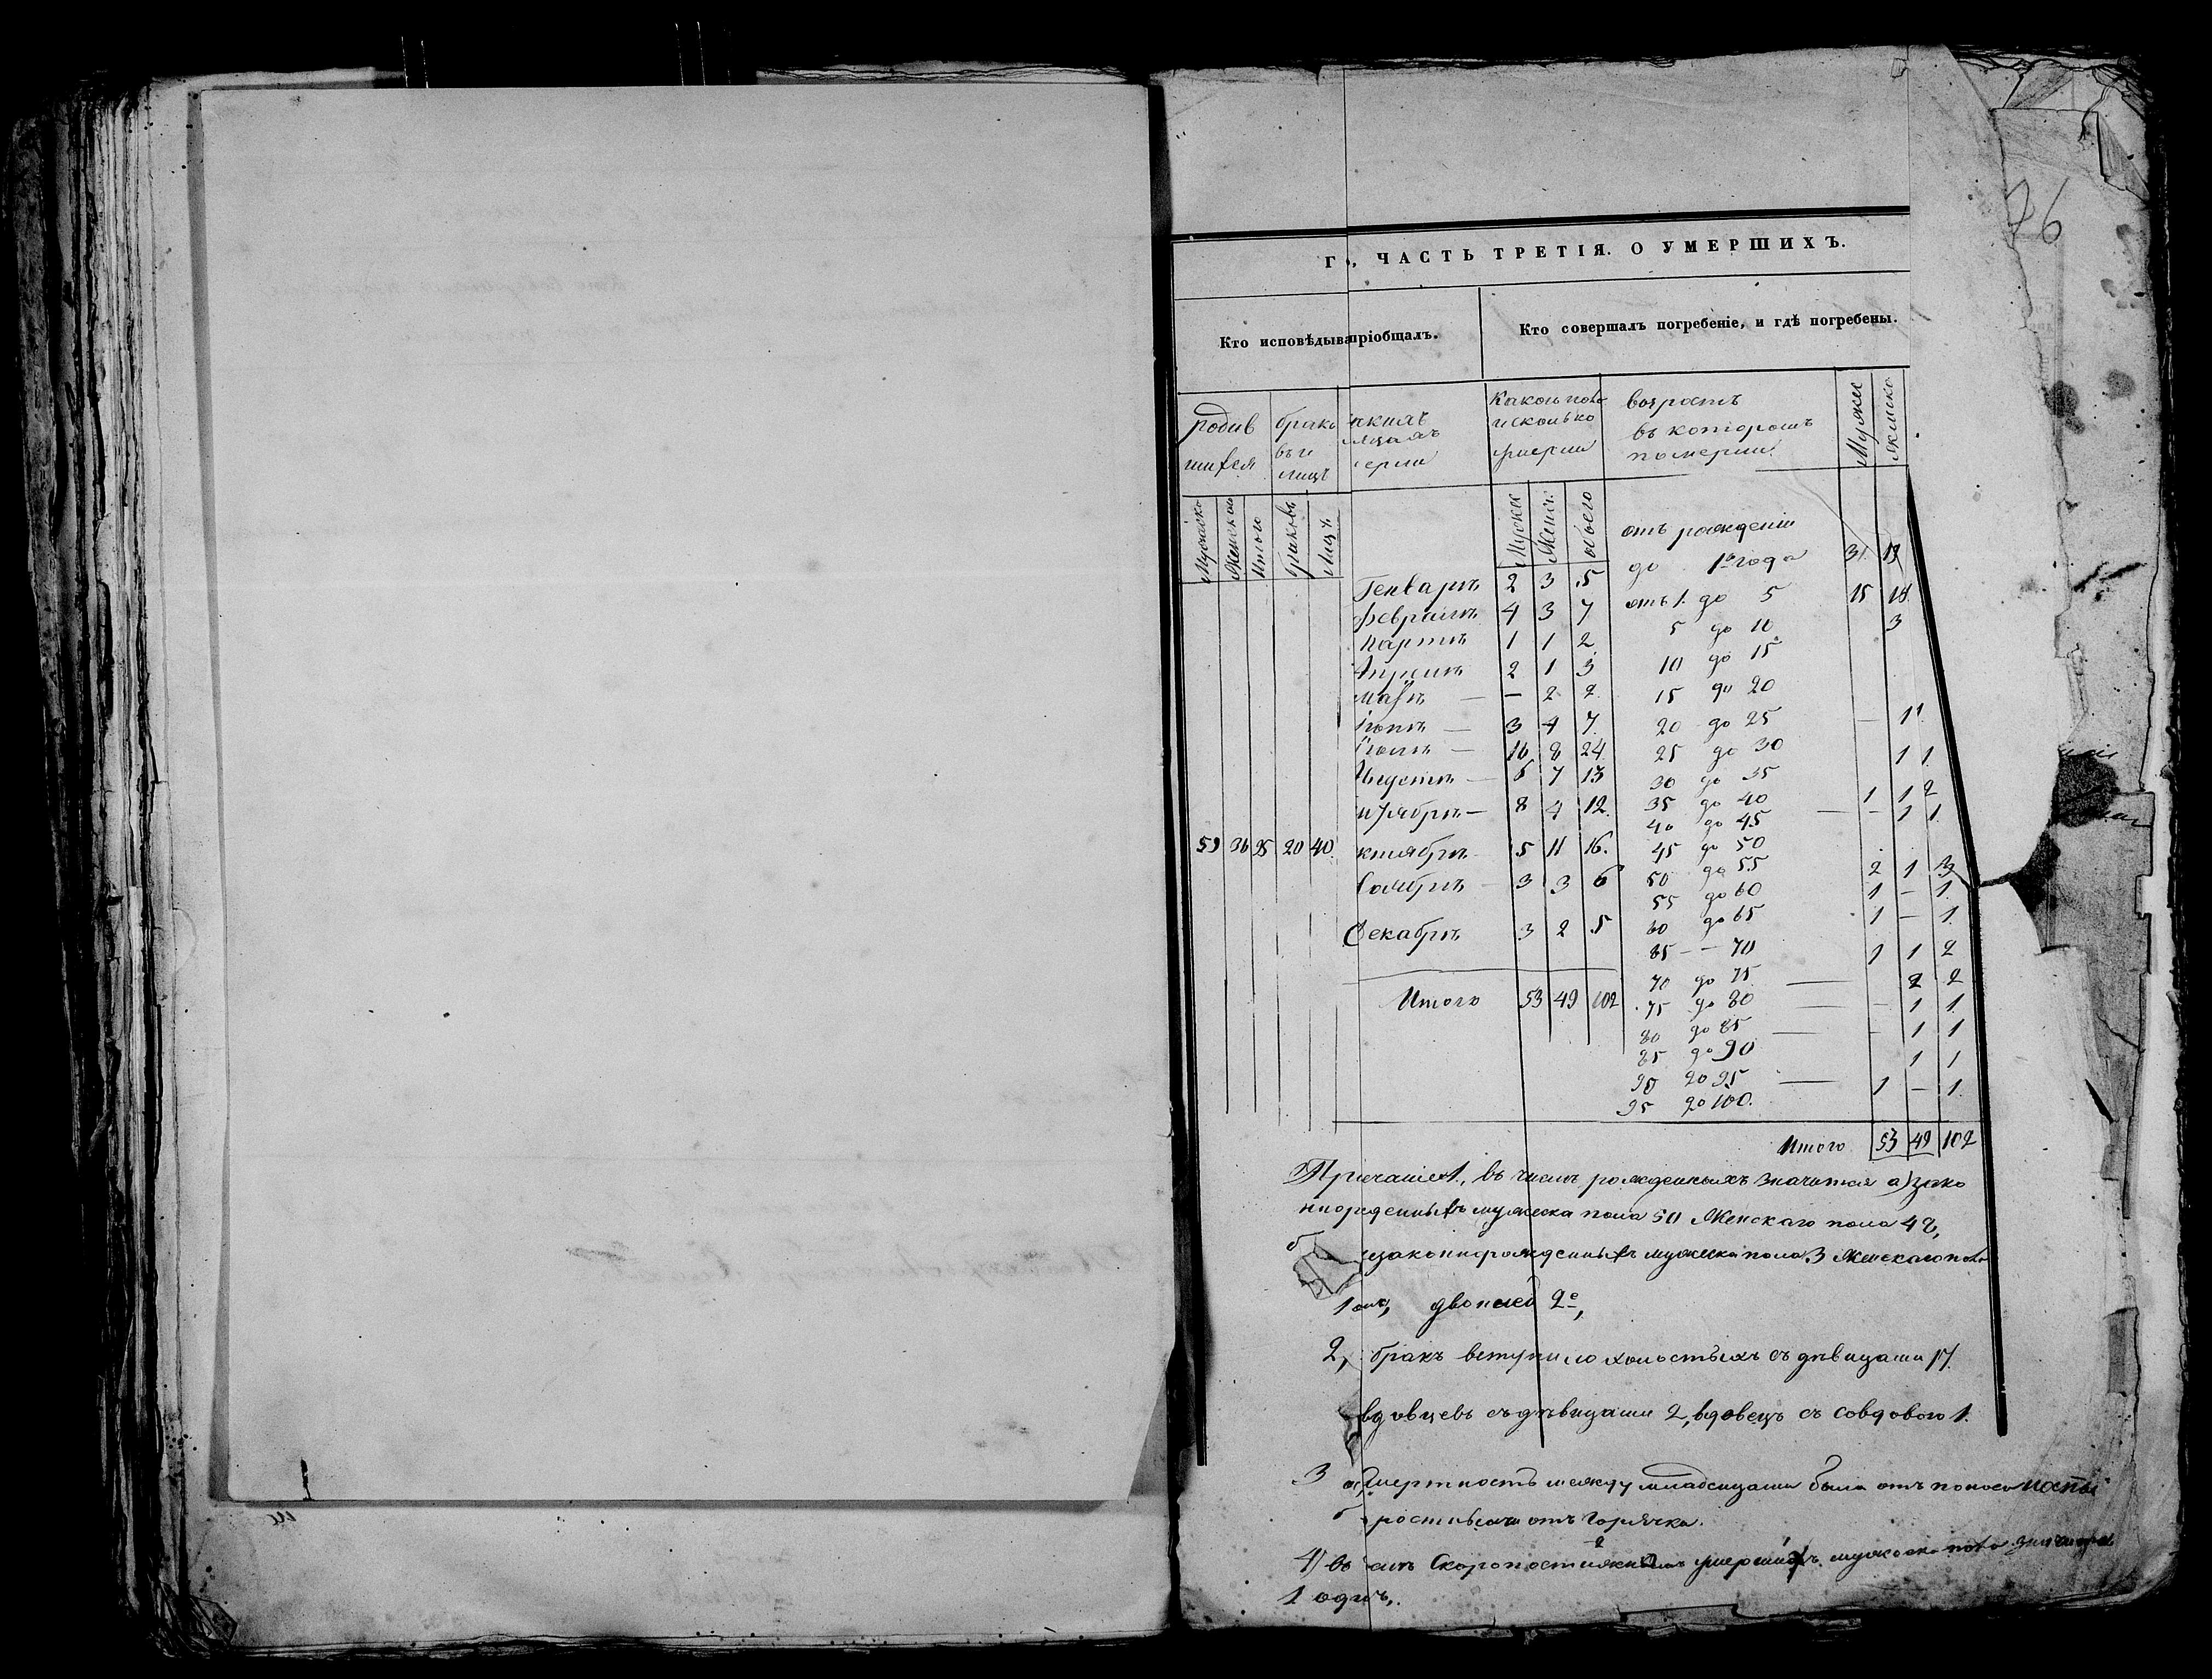 76
Г., ЧАСТЬ ТРЕТІЯ. О УМЕРШИХЪ.
Кто исповѣдыва пріобщалъ. Кто совершалъ погребеніе, и гдѣ погребены.
родив брако Какого пола возрастъ Мужес Женско
шихся въ и и сколько въ которомъ
лицъ умерли померли
Мужско Женска Итого браковъ Лицъ Мужск Женск обоего
отъ рожденія
до 1го года 31 13
Генварь 2 3 5
отъ 1. до 5 15 18
Февраль 4 3 7
5 до 10 3
Мартъ 1 1 2
10 до 15
Апрель 2 1 3
15 до 20
Май — — 2 2
20 до 25 — 1 1
Іюнь — 3 4 7
25 до 30 1 1
Іюль — 16 8 24
30 до 35
Августъ — 6 7 13
35 до 40 1 1 2
8 4 12
40 до 45 — — 1 1
59 36 95 20 40 ктябрь 5 11 16.
45 до 50
50 до 55 2 1 3
3 3 6
55 до 60 1 — 1
60 до 65 1 — 1
Декабрь 3 2 5
65 — — 70 1 1 2
70 до 75 — 2 2
Итого 53 49 102
75 до 80 — — 1 1
80 до 85 — — 1 1
85 до 90 1 1
90 до 95 — 1 — 1
95 до 100.
Итого 53 49 102
1, въ числѣ рожденныхъ значится а) зако
мужеска пола 50 Женскаго пола 42,
б незаконнорожденныхъ мужеска пола 3 Женскаго пола
1 двоней 2е,
2, бракъ вступило холостыхъ съ дѣвицами 17.
вдовцевъ съ дѣвицами 2, вдовецъ съ со вдовою 1.
3 а, смертность между младенцами была отъ поноса
б отъ горячки.
4) въ скоропостижно умершихъ мужеска пола
1 одинъ,.